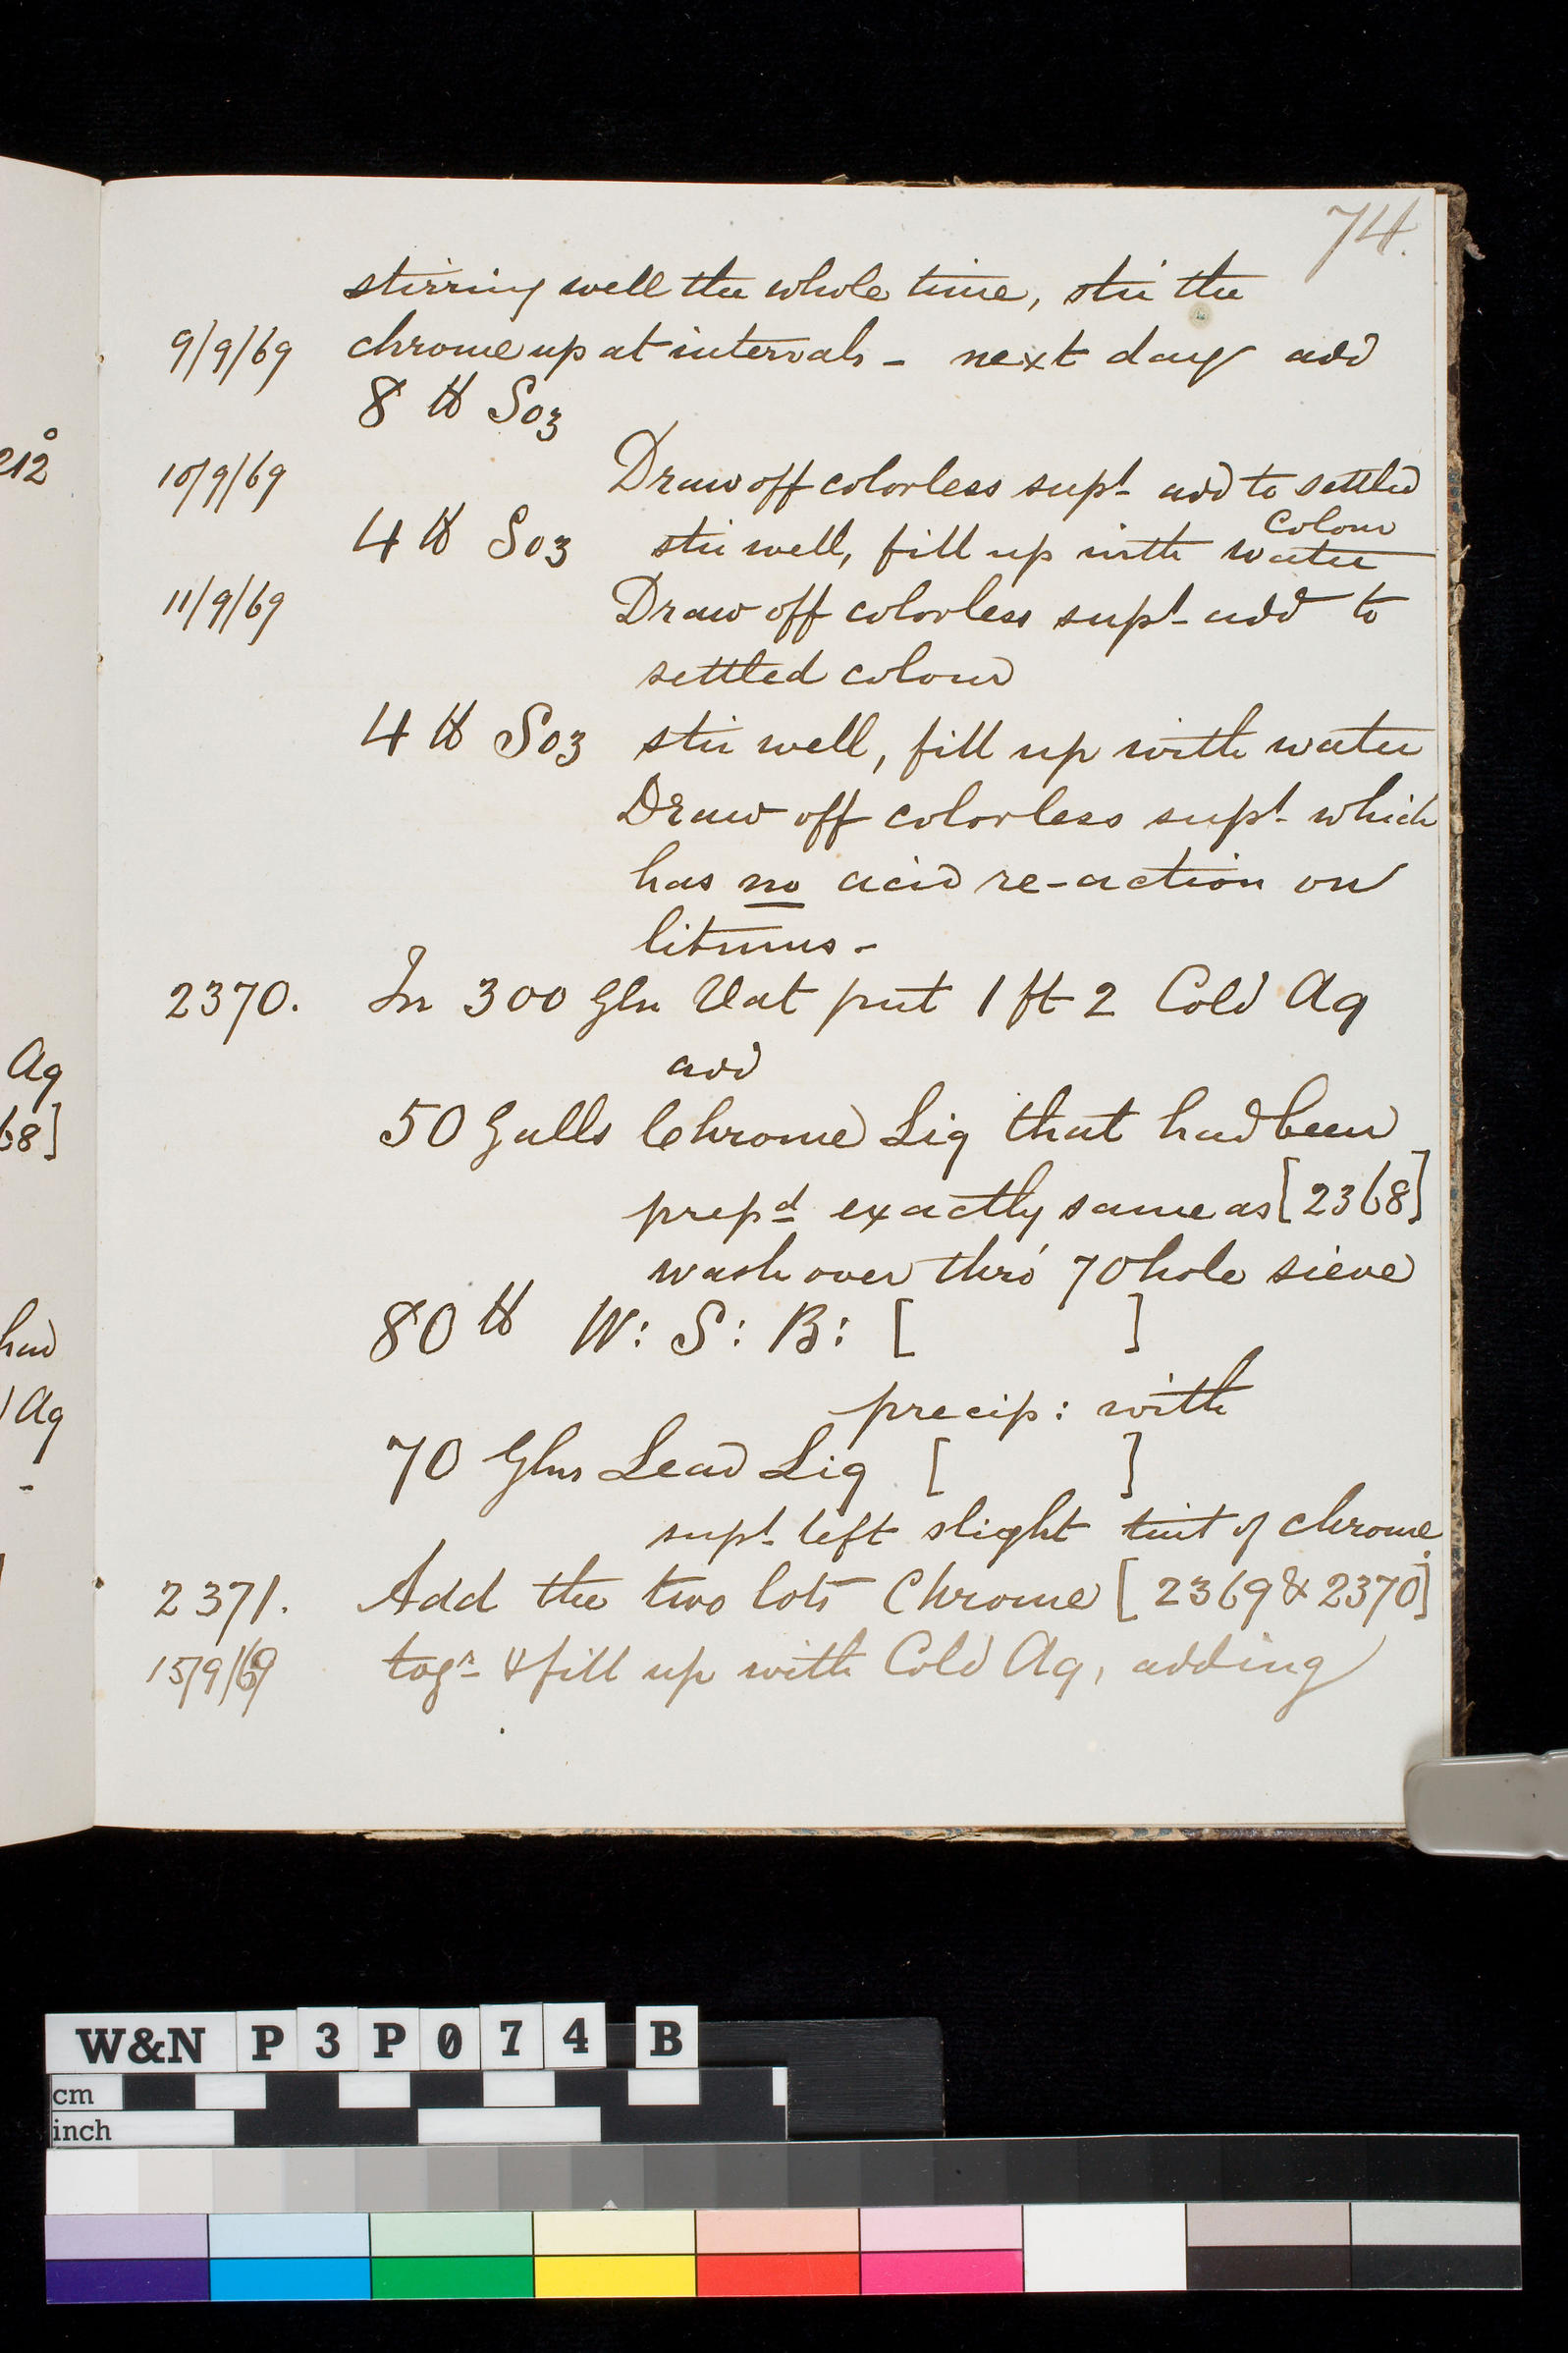 74.
stirring well the whole time, stir the
9/9/69 chrome up at intervals - next day add
8 ℔ So3
10/9/69 Draw off colorless supt add to settled
colour
4 ℔ So3 stir well, fill up with water
11/9/69 Draw off colorless supt add to
settled colour
4 ℔ So3 stir well, fill up with water
Draw off colorless supt which
has no acid re-action on
litmus -
2370. In 300 Gln Vat put 1 ft 2 Cold Aq
add
50 Galls Chrome Liq that had been
prepd exactly same as [2368]
wash over thro' 70 hole sieve
80 ℔ W: S: B: [ ]
precip: with
70 Glns Lead Liq [ ]
supt left slight tint of chrome.
2371. Add the two lots Chrome [2369 & 2370]
15/9/69 togr & fill up with Cold Aq, adding
212°
Aq
68]
had
Aq
-
W&N P3P074 B
cm
inch